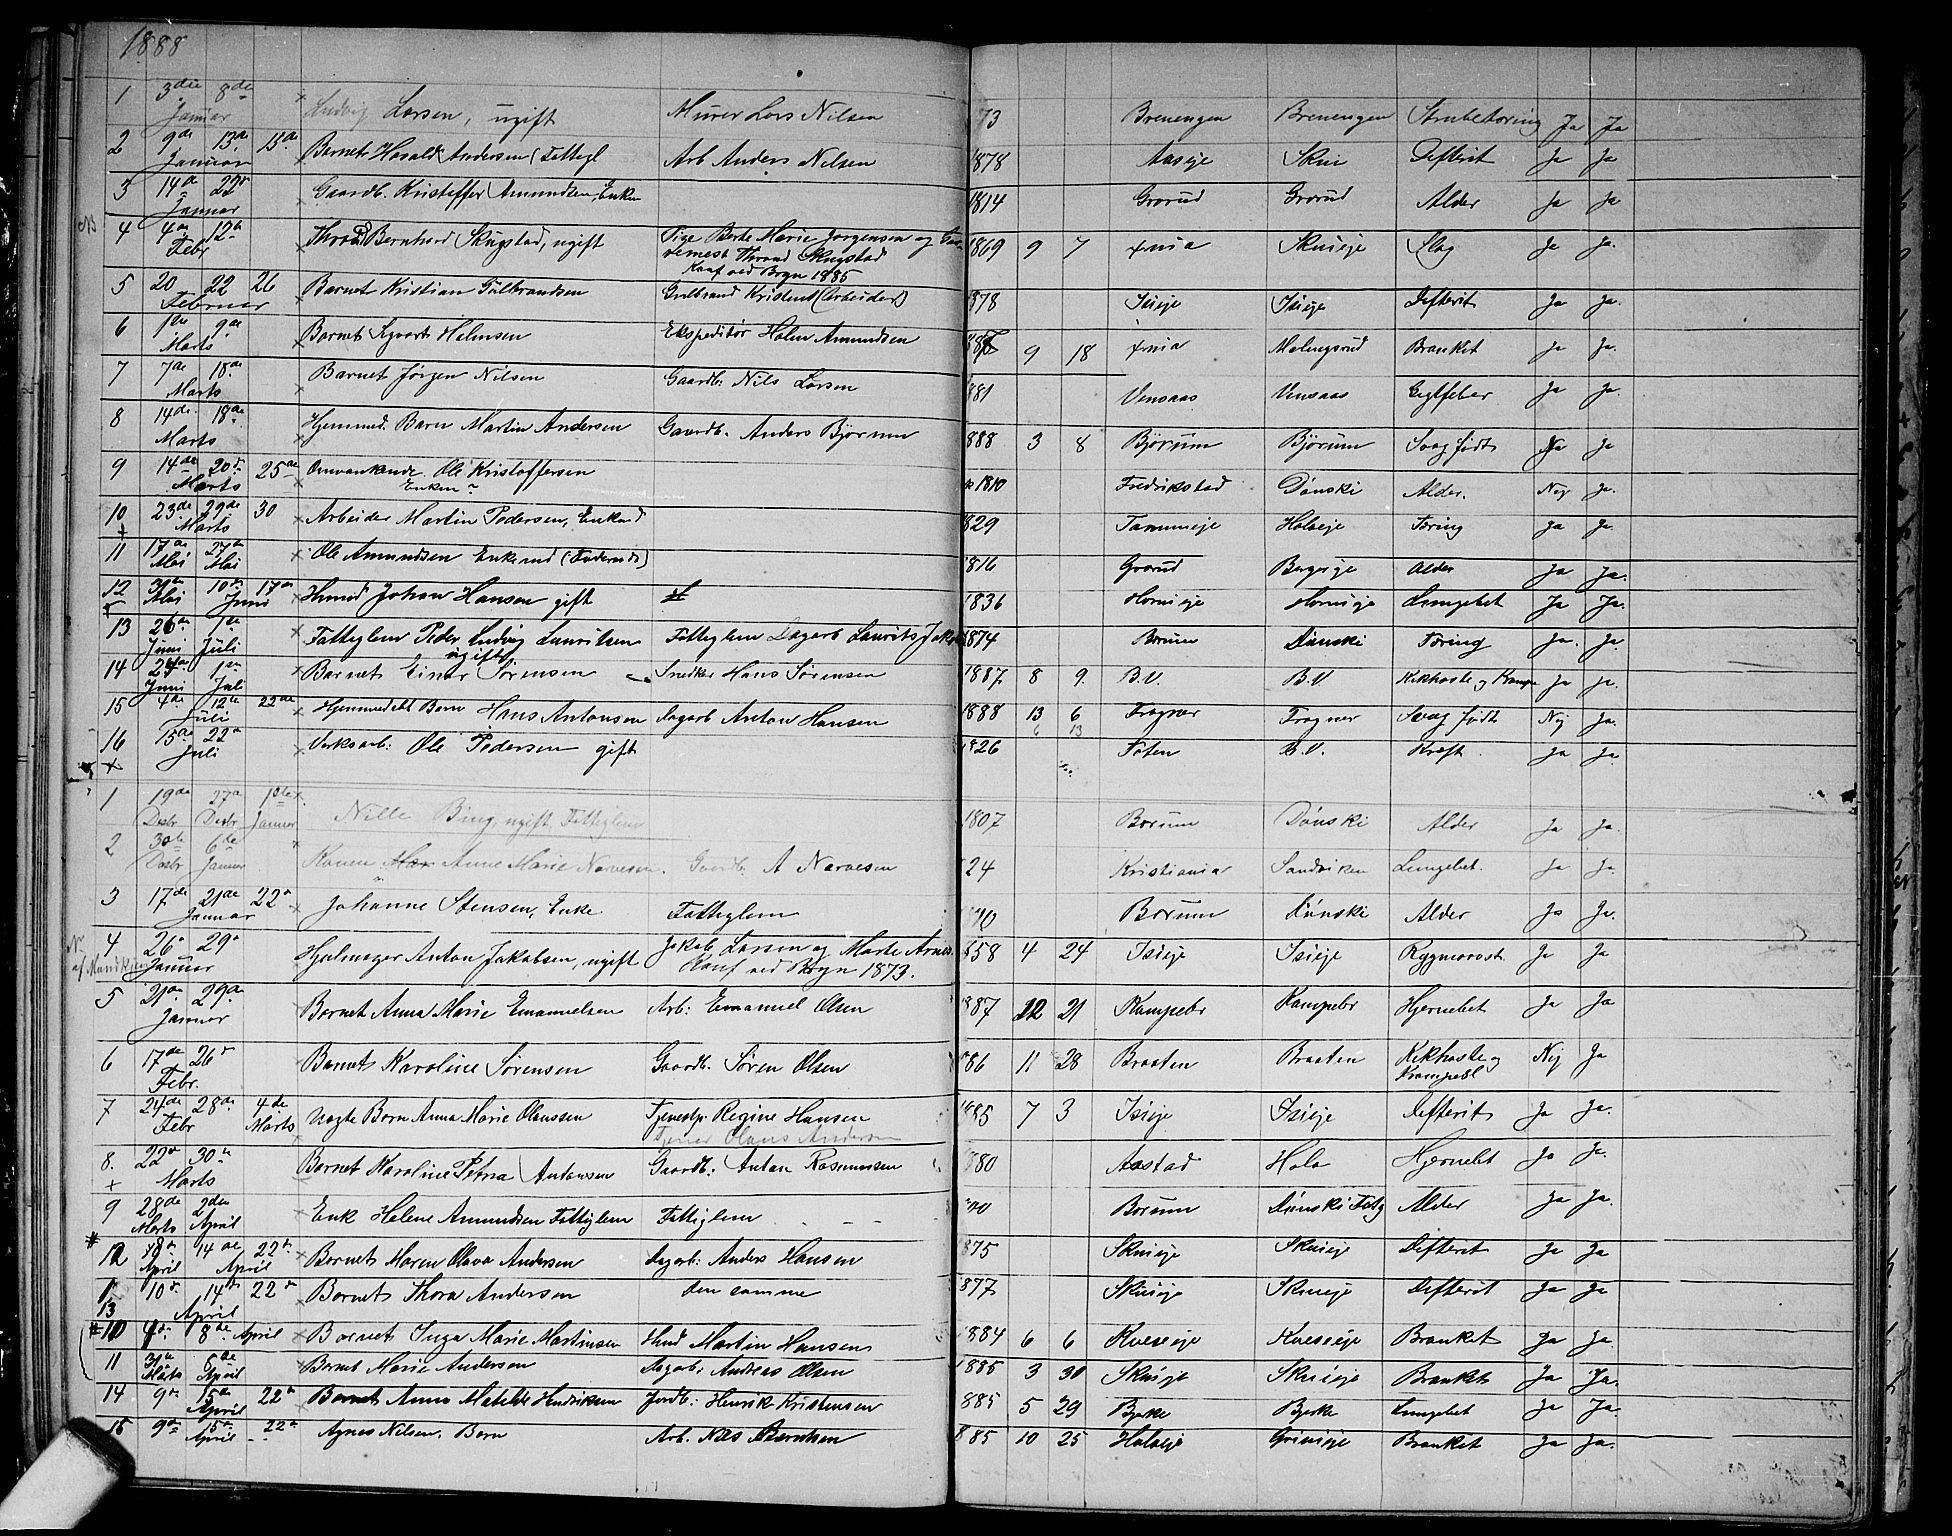 1888
1 3die 8de Januar Ludvig Larsen, ugift Murer Lars Nilsen 73 Brenengen Brenengen Ja Ja
2 9de 13de 15de Januar Barnet Harald Andersen (Fattigl Arb. Anders Nilsen 1878 Aaseje Skui Defterit Ja Ja
3 14de 22de Januar Gaardb. Kristoffer Amundsen, Enkem 1814 Grorud Grorud Alder Ja Ja
4 4de 12te Febr Thrond Bernhard Skugstad, ugift Pige Berte Marie Jørgensen og Thrond Skugstad Konf ved Bryn 1885 1869 9 7 Xnia Skuieje Slag Ja Ja.
5 20 22 26 Februar Barnet Kristian Gulbrandsen Gulbrand Kristens (Arbeider) 1878 Isieje Isieje Defterit Ja Ja.
6 1ste 9de Marts Barnet Sigvart Holmsen Ekspeditør Holm Amundsen 9 18 Xnia Malmgsrud Bronket Ja Ja.
7 7de 18de Marts Barnet Jørgen Nilsen Gaardb: Nils Larsen 881 Vensaas Vensaas Gigtfeber Ja Ja.
8 14de 18de Marts Hjemmed. Barn Martin Andersen Gaardb. Anders Bjørum 888 3 8 Bjørum Bjørum Svag født Ja Ja
9 14de 20de 25de Marts Omvankende Ole Kristoffersen Enkem 1810 Fredrikstad Dønski Alder. Nej Ja.
10 23de 29de 30 Marts Arbeider Martin Pedersen, Enkemd 829 Tammeje Holoeje Tæring Ja Ja
11 17de 27de Mai Mai Ole Amundsen Enkemd (Føderaads) 1816 Grorud Bergeje Alder Ja Ja.
12 3die 10de 17de Mai Juni Husmd Johan Hansen gift 1836 Horneje Horneje Lungebet. Ja Ja.
13 26de 1ste Juni Juli Fattiglem Peder Ludvig Lauritsen ugift Fattiglem Dagarb Laurits Jakobs 1874 Borum Dønski Tæring Ja. Ja.
14 24de 1ste Juni Juli Barnet Einar Sørensen Snedker Hans Sørensen 1887 8 9. B.V. B.V. Kikhoste og Krampe Ja Ja.
15 4de 12te 22de Juli Hjemmedøbt Barn Hans Antonsen Dagarb Anton Hansen 1888 13 6 6 13 Frogner Frogner Svag født Nej Ja.
16 15de 22de Juli Verksarb: Ole Pedersen gift 1826 Toten B.V. Kræft. Ja Ja.
1 19de 27de 1ste Desbr Desbr Januar Nille Bing, ugift Fattiglem 1807 Borum Dønski Alder Ja Ja.
2 30te 6te Desbr Januar Konen Anne Marie Narvesen. Gaardb: A Narvesen 24 Kristiania Sandviken Lungebet. Ja Ja.
3 17de 21de 22de Januar Johanne Stensen, Enke Fattiglem Borum Dønski Alder Ja Ja.
4 26de 29de Januar Hjulmager Anton Jakobsen, ugift Jakob Larsen og Marte Arnes. Konf ved Bryn 1873. 858 4 24 Isieje Isieje Rygmarvst Ja Ja
5 21de 29de Januar Barnet Anna Marie Emanuelsen Arb: Emanuel Olsen 887 12 21 Kampebr Kampebr Hjernebet Ja Ja
6 17de 26de Febr. Barnet Karoline Sørensen Gaardb. Søren Olsen 86 11 28 Braaten Braaten Kikhoste og Krampesl Nej Ja
7 24de 28de 4de Febr Marts uægte Barn Anna Marie Olaussen Tjenestp. Regine Hansen Tjener Olaus Andersen 885 7 3 Isieje Isieje Defterit Ja Ja.
8. 22de 30te Marts Barnet Karoline Petra Antonsen Gaardb: Anton Rasmussen 880 Aastad Hola Hjernebet Ja Ja.
9 28de 2den Marts April Enk Helene Amundsen Fattiglem Fattiglem Borum Dønski Fatg Alder Ja Ja.
12 8de 14de 22de April April Barnet Maren Olava Andersen Dagarb: Anders Hansen 875 Skuieje Skuieje Defterit Ja Ja
13 10de 14de 22de April Barnet Thora Andersen den samme 877 Skuieje Skuieje Defterit Ja Ja
10 4de 8de April Barnet Inga Marie Martinsen Husmd Martin Hansen 1884 6 6 Kveseje Kveseje Bronket Ja Ja.
11 31te 6de Marts April Barnet Marie Andersen Dagarb: Andreas Olsen 1885 3 30 Skuieje Skuieje Bronket Ja Ja.
14 9de 15de 22de April Barnet Anna Matilde Hendriksen Jordb: Henrik Kristensen 885 5 29 Bjerke Bjerke Lungebet Ja Ja.
15 9de 15de 22de April Agnes Nilsen. Barn Arb. Nils Berntsen 885 10 25 Holoeje Grineje Bronket Ja Ja.